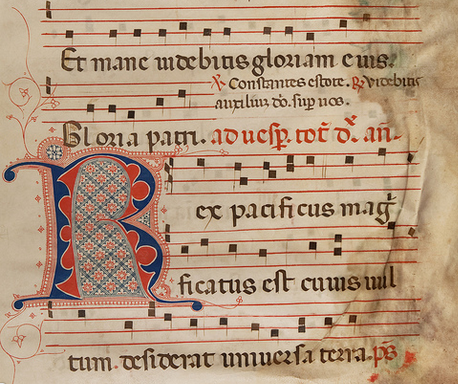 Et mane uidebitis gloriam eius.
℣. Constantes estote. ℟. Videbitis
auxiliu dò. sup uos.
Gloria patri. ad uesp̄. tot̄. d̄. an̄.
Rex pacificus mag̃
ficatus est cuius uul
tum. desiderat uniuersa terra. p̄s